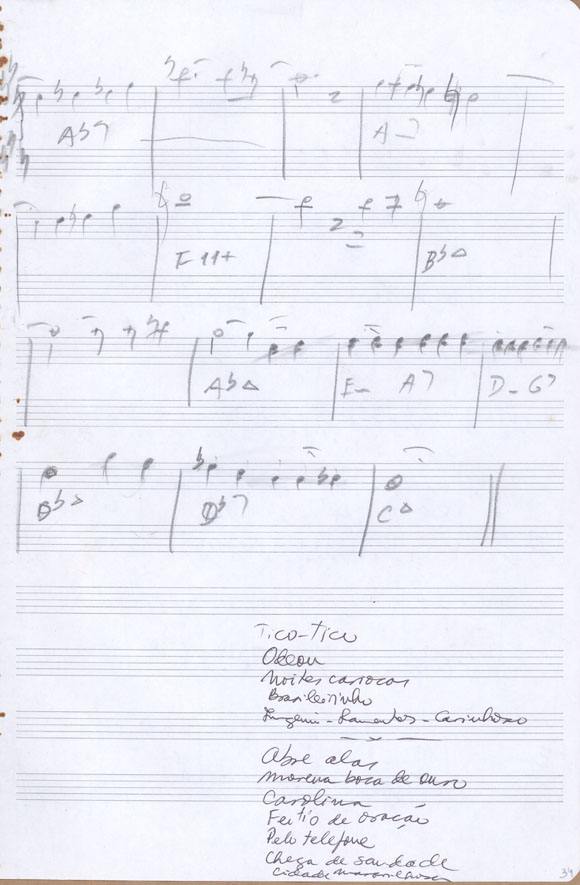 Ab7 A-7
F 11+ Bb△
Ab△ E- A7 D- G7
Bb△ Db7 C△
Tico-Tico
Odeon
Noites cariocas
Brasileirinho
Ingenuo - Lamentos - Carinhoso
Abre alas
Morena boca de ouro
Carolina
Feitio de oração
Pelo telefone
Chega de saudade
Cidade maravilhosa